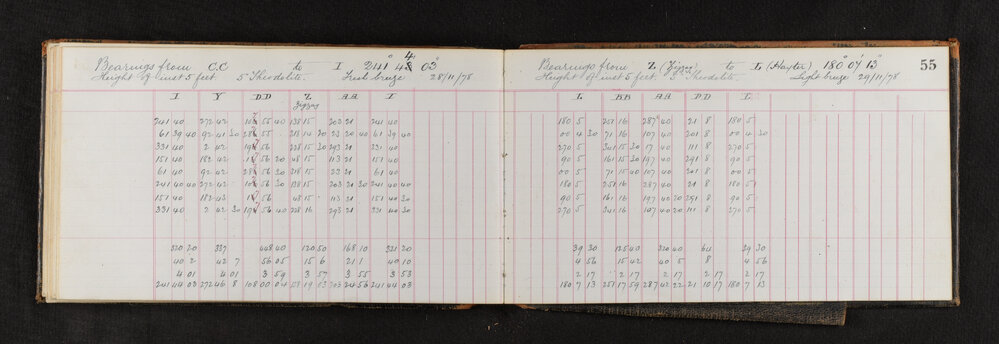 Bearings from C.C to I 241° 44 03"
Height of inst 5 feet 5" Theodolite. Fresh breeze 28/11/78
I Y DD Z AA I
Zigzag
241 40 272 42 55 40 138 15 203 21 241 40
61 39 40 92 41 30 55 318 15 20 23 20 40 61 39 40
331 40 2 42 56 228 15 30 293 21 331 40
151 40 182 42 56 20 48 15 113 21 151 40
61 40 92 42 56 30 318 15 23 21 61 40
241 40 40 272 42 56 30 138 15 203 21 30 241 40 40
151 40 182 43 56 48 15 113 21 151 40 30
331 40 2 42 30 56 40 228 16 293 21 331 40 30
320 20 337 448 40 120 50 168 10 321 20
40 2 42 7 56 05 15 6 21 1 40 10
4 01 4 01 3 59 3 57 3 55 3 53
241 44 03 272 46 8 108 00 04 138 19 03 203 24 56 241 44 03
Bearings from Z (Zigzag) to L (Hayter) 180° 07' 13"
55
Height of inst 5 feet 5" Theodolite. Light breeze 29/11/78
L BB AA DD L
180 5 251 16 287 40 21 8 180 5
00 4 30 71 16 107 40 201 8 00 4 30
270 5 341 15 30 17 40 111 8 270 5
90 5 161 15 30 197 40 291 8 90 5
00 5 71 15 40 107 40 201 8 00 5
180 5 251 16 287 40 21 8 180 5
90 5 161 16 197 40 20 291 8 90 5
270 5 341 16 107 40 20 111 8 270 5
39 30 125 40 320 40 64 39 30
4 56 15 42 40 5 8 4 56
2 17 2 17 2 17 2 17 2 17
180 7 13 251 17 59 287 42 22 21 10 17 180 7 13